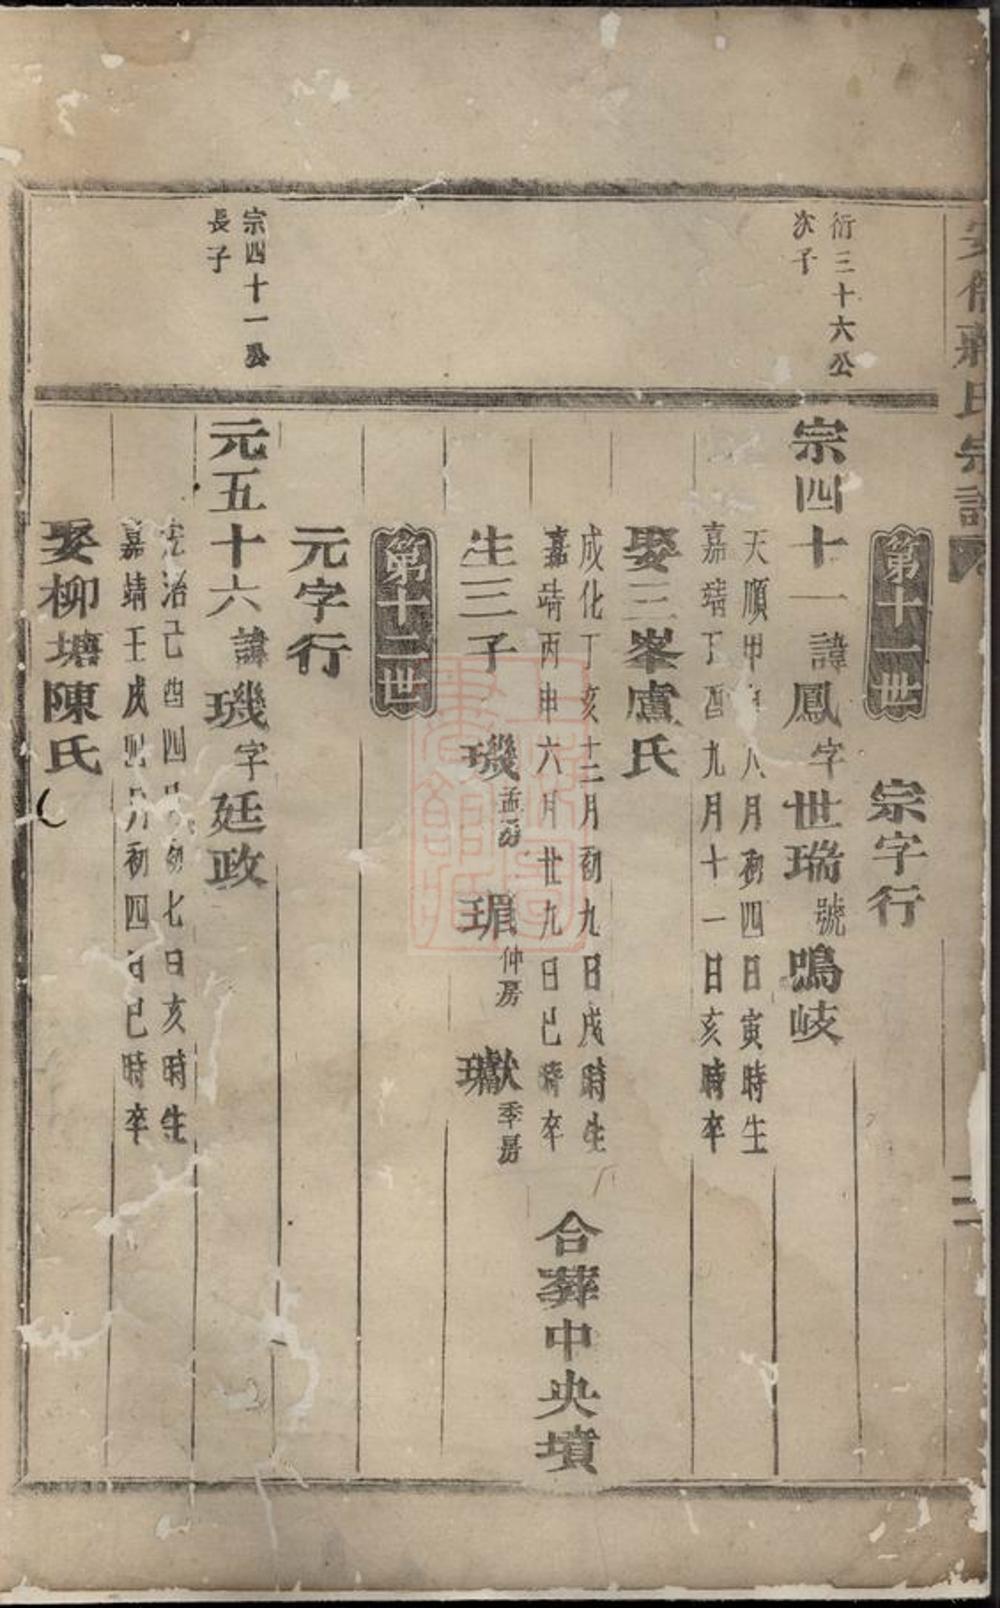 第十一世 宗字行
衍三十六公
次子
宗四十一 諱鳳 字世瑞 號鳴岐
天順甲申八月初四日寅時生
嘉靖丁酉九月十一日亥時卒
娶三峯盧氏
成化丁亥十二月初九日戌時生
嘉靖丙申六月廿九日巳時卒
合葬中央墳
生三子 璣孟房 瑻仲房 瓛季房
第十二世
元字行
宗四十一公
長子
元五十六 諱璣 字廷政
弘治己酉四月初七日亥時生
嘉靖壬戌四月初四日巳時卒
娶柳塘陳氏
氏宗譜
二
上海圖書館藏